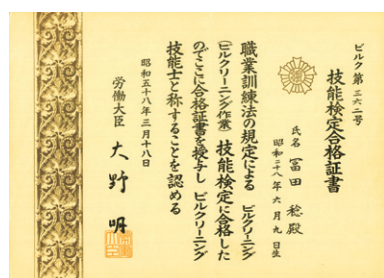 ビルク第三六二号
技能検定合格証書
氏名 冨田 稔殿
昭和二八年六月九日生
職業訓練法の規定による ビルクリーニング
(ビルクリーニング作業) 技能検定に合格した
のでここに合格証書を授与し ビルクリーニング
技能士と称することを認める
昭和五十八年三月十八日
労働大臣 大野 明